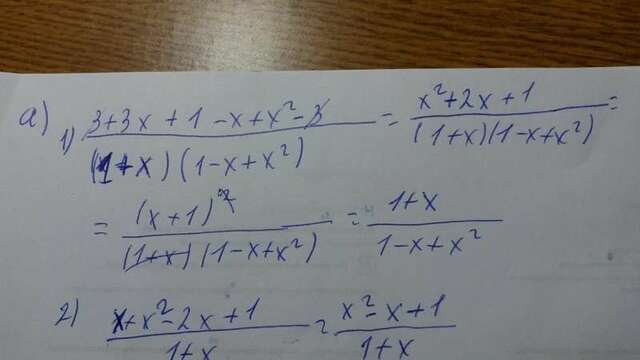 a) 1) (3+3x+1-x+x²-3)/((1+x)(1-x+x²)) = (x²+2x+1)/((1+x)(1-x+x²)) =
= (x+1)²/((1+x)(1-x+x²)) = (1+x)/(1-x+x²)
2) (x+x²-2x+1)/(1+x) = (x²-x+1)/(1+x)